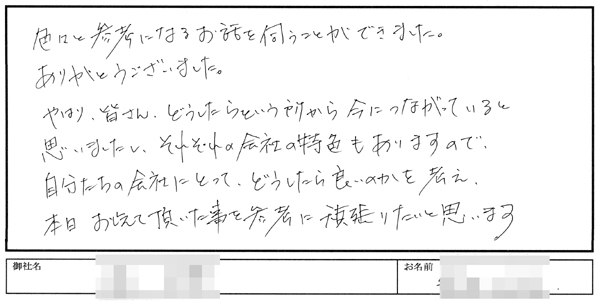 色々と参考になるお話を伺うことができました。
ありがとうございました。
やはり、皆さん、どうしたらという所から今につながっていると
思いましたし、それぞれの会社の特色もありますので、
自分たちの会社にとって、どうしたら良いのかを考え、
本日お伝えて頂いた事を参考に頑張りたいと思います
御社名
お名前